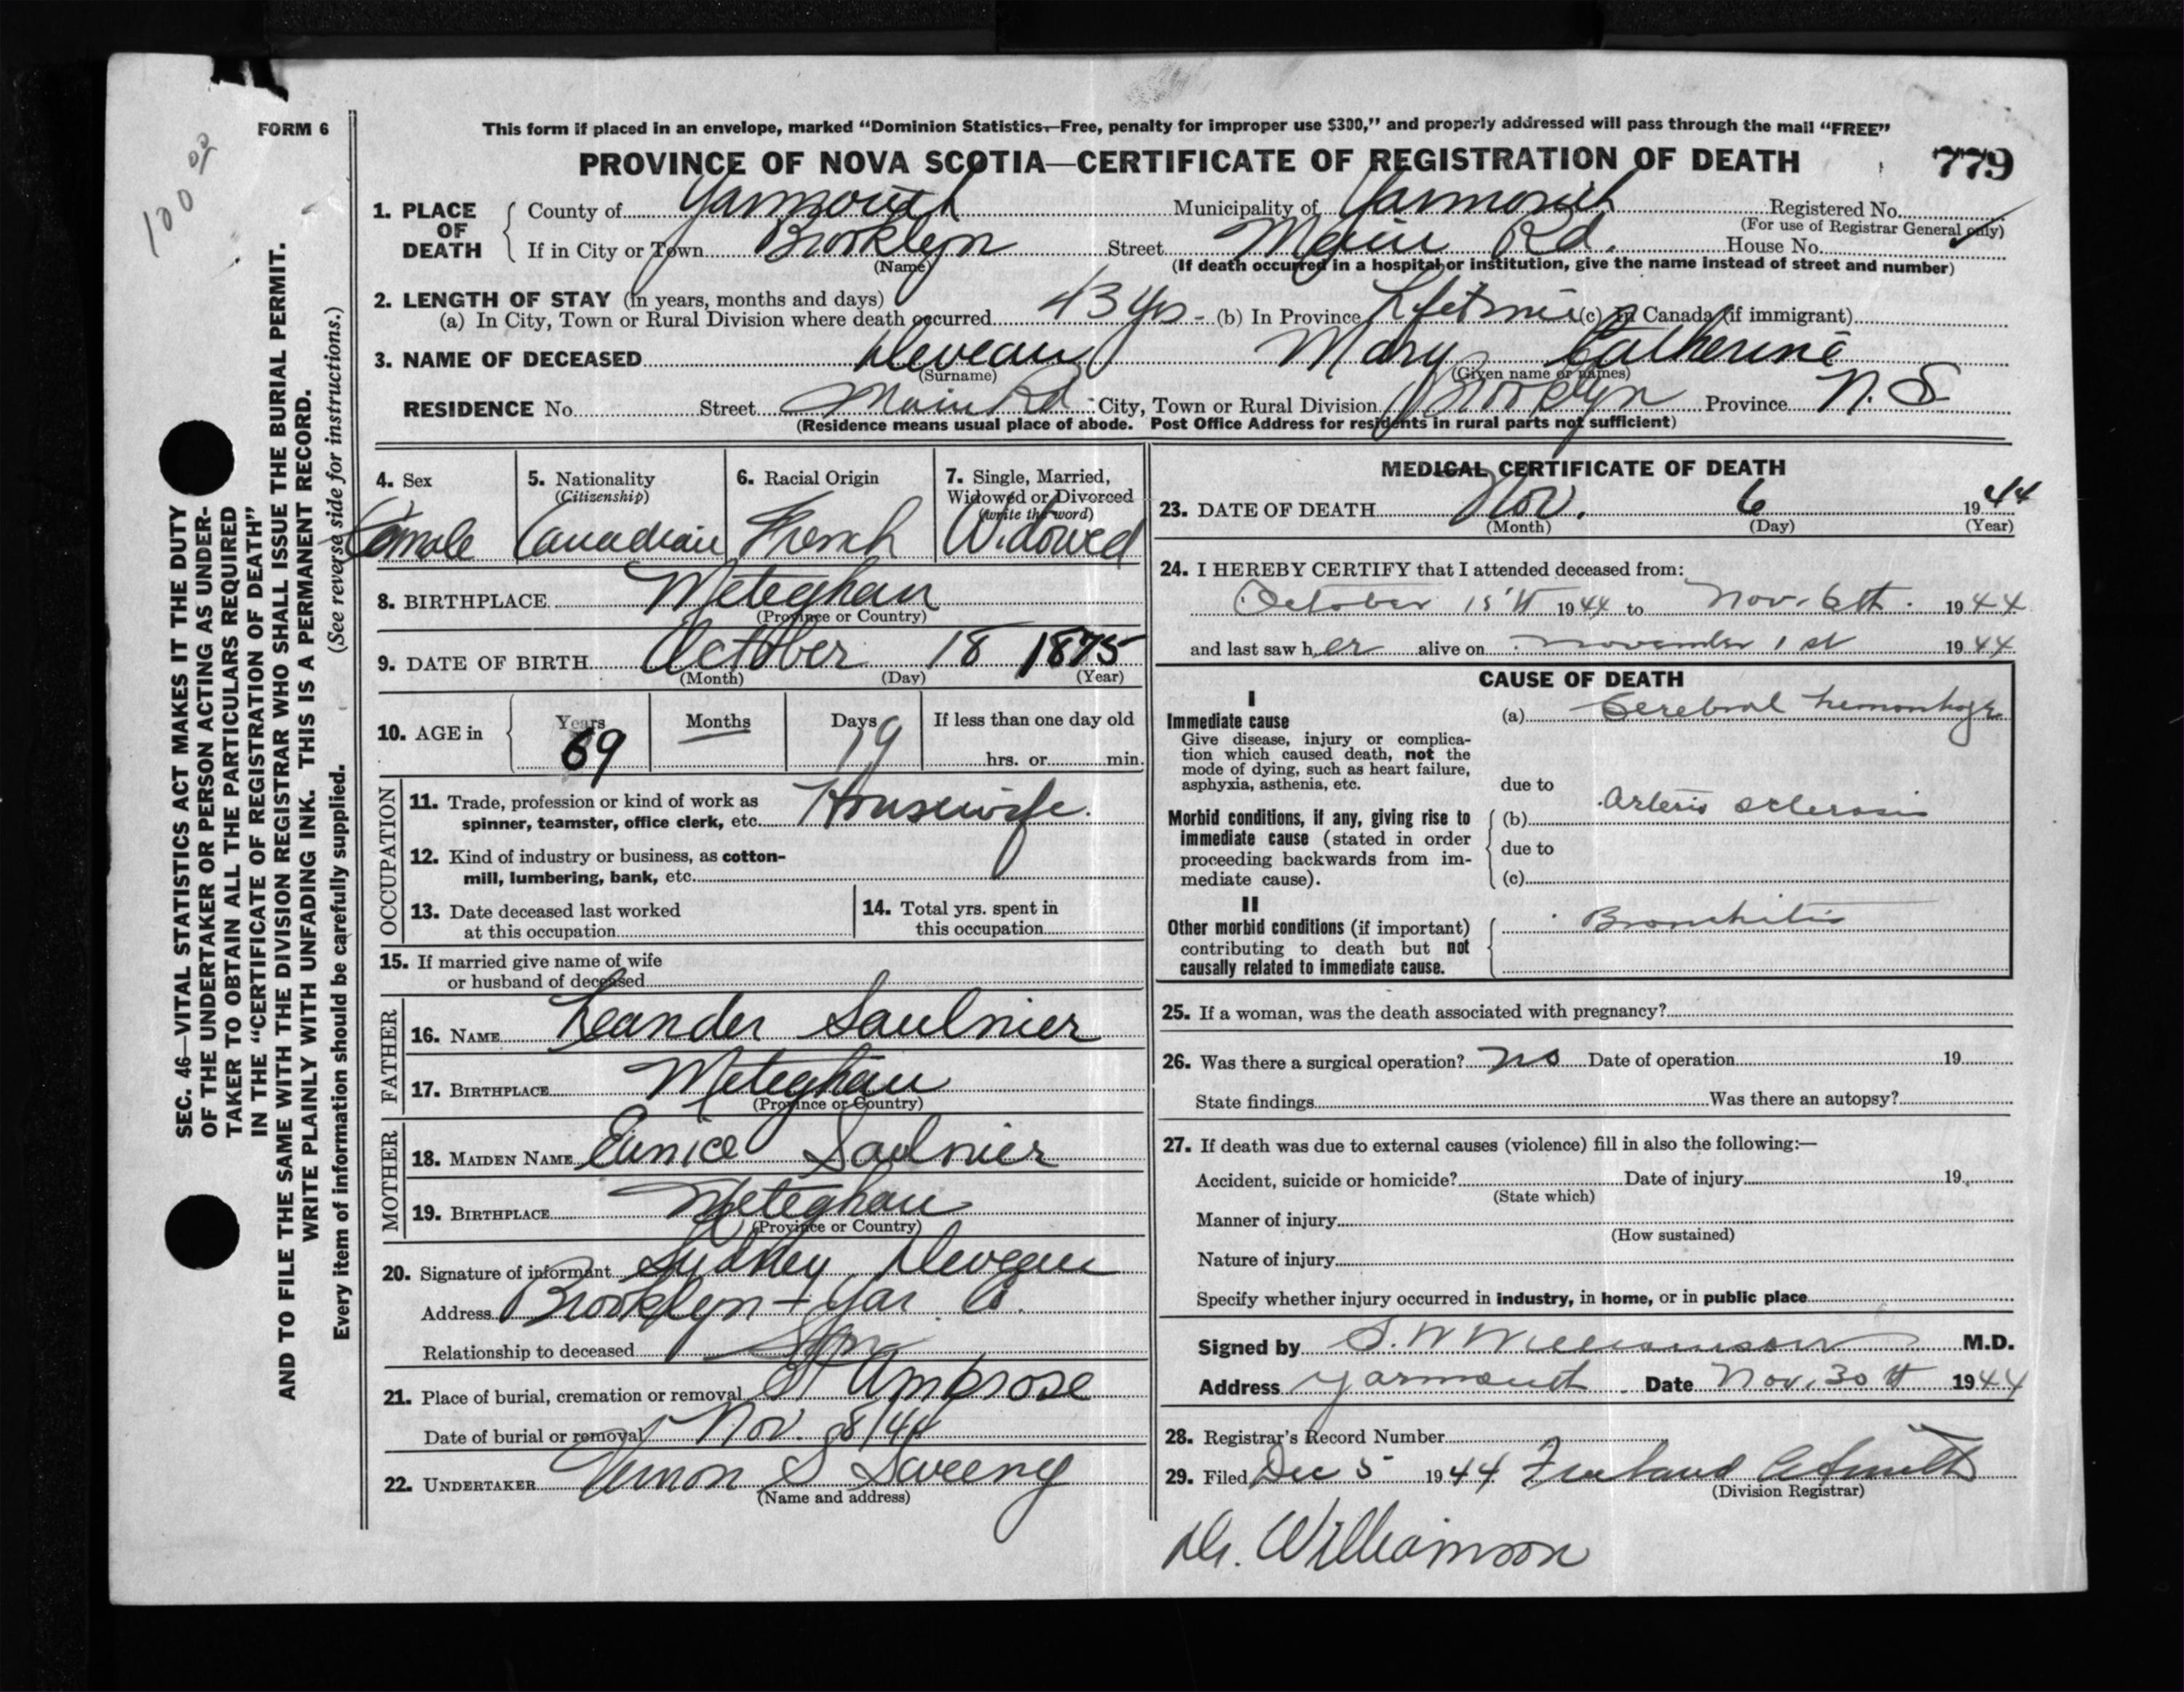 100 00
FORM 6
This form if placed in an envelope, marked “Dominion Statistics—Free, penalty for improper use $300,” and properly addressed will pass through the mail “FREE”
PROVINCE OF NOVA SCOTIA—CERTIFICATE OF REGISTRATION OF DEATH 779
1. PLACE OF DEATH County of Yarmouth Municipality of Yarmouth Registered No.
(For use of Registrar General only)
If in City or Town Brooklyn Street Main Rd. House No.
(Name) (If death occurred in a hospital or institution, give the name instead of street and number)
2. LENGTH OF STAY (in years, months and days)
(a) In City, Town or Rural Division where death occurred 43 yrs - (b) In Province Lifetime (c) In Canada (if immigrant)
3. NAME OF DECEASED Deveau Mary Catherine
(Surname) (Given name or names)
RESIDENCE No. Street Main Rd City, Town or Rural Division Brooklyn Province N.S
(Residence means usual place of abode. Post Office Address for residents in rural parts not sufficient)
4. Sex 5. Nationality 6. Racial Origin 7. Single, Married,
(Citizenship) Widowed or Divorced
(write the word)
Female Canadian French Widowed
8. BIRTHPLACE Meteghan
(Province or Country)
9. DATE OF BIRTH October 18 1875
(Month) (Day) (Year)
10. AGE in Years Months Days If less than one day old
69 — 19 hrs. or min.
OCCUPATION
11. Trade, profession or kind of work as
spinner, teamster, office clerk, etc. Housewife.
12. Kind of industry or business, as cotton-
mill, lumbering, bank, etc.
13. Date deceased last worked 14. Total yrs. spent in
at this occupation this occupation
15. If married give name of wife
or husband of deceased
FATHER
16. NAME Leander Saulnier
17. BIRTHPLACE Meteghan
(Province or Country)
MOTHER
18. MAIDEN NAME Eunice Saulnier
19. BIRTHPLACE Meteghan
(Province or Country)
20. Signature of informant Sydney Deveau
Address Brooklyn Yar Co.
Relationship to deceased Son
21. Place of burial, cremation or removal St Ambrose
Date of burial or removal Nov. 8/44
22. UNDERTAKER Vernon S Sweeny
(Name and address)
MEDICAL CERTIFICATE OF DEATH
23. DATE OF DEATH Nov. 6 1944
(Month) (Day) (Year)
24. I HEREBY CERTIFY that I attended deceased from:
October 15th 1944 to Nov. 6th. 1944
and last saw her alive on November 1st 1944
CAUSE OF DEATH
I
Immediate cause (a) Cerebral hemorrhage
Give disease, injury or complica-
tion which caused death, not the
mode of dying, such as heart failure,
asphyxia, asthenia, etc. due to
Morbid conditions, if any, giving rise to (b) Arterio sclerosis
immediate cause (stated in order
proceeding backwards from im- due to
mediate cause). (c)
II
Other morbid conditions (if important) Bronchitis
contributing to death but not
causally related to immediate cause.
25. If a woman, was the death associated with pregnancy?
26. Was there a surgical operation? no Date of operation 19
State findings Was there an autopsy?
27. If death was due to external causes (violence) fill in also the following:—
Accident, suicide or homicide? Date of injury 19
(State which)
Manner of injury
(How sustained)
Nature of injury
Specify whether injury occurred in industry, in home, or in public place
Signed by S.W Williamson M.D.
Address Yarmouth Date Nov. 30th 1944
28. Registrar's Record Number
29. Filed Dec 5 1944
(Division Registrar)
Dr. Williamson
SEC. 46—VITAL STATISTICS ACT MAKES IT THE DUTY
OF THE UNDERTAKER OR PERSON ACTING AS UNDER-
TAKER TO OBTAIN ALL THE PARTICULARS REQUIRED
IN THE “CERTIFICATE OF REGISTRATION OF DEATH”
AND TO FILE THE SAME WITH THE DIVISION REGISTRAR WHO SHALL ISSUE THE BURIAL PERMIT.
WRITE PLAINLY WITH UNFADING INK. THIS IS A PERMANENT RECORD.
Every item of information should be carefully supplied. (See reverse side for instructions.)